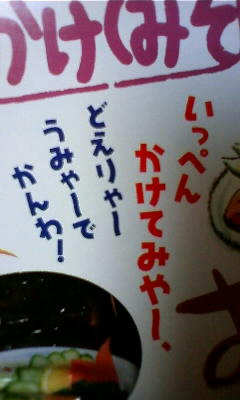 かけてみそ
いっぺん
かけてみやー、
どえりゃー
うみゃーで
かんわ!